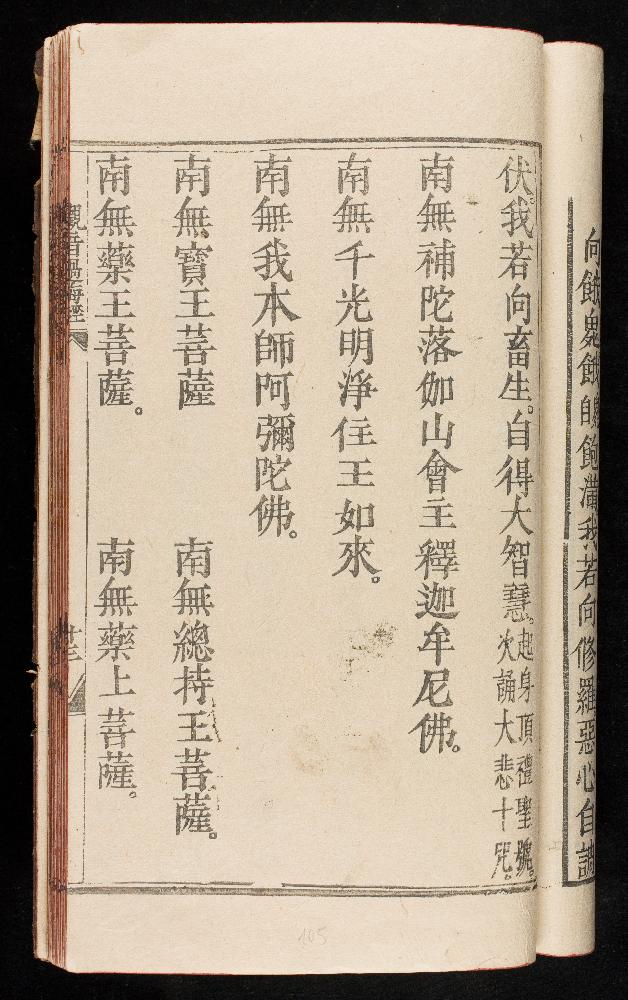 向餓鬼餓鬼自飽滿我若向修羅惡心自調
伏。我若向畜生。自得大智慧。起身頂禮聖號。
次誦大悲十咒。
南無補陀落伽山會主釋迦牟尼佛。
南無千光明淨住王如來。
南無我本師阿彌陀佛。
南無寶王菩薩 南無總持王菩薩。
南無藥王菩薩。 南無藥上菩薩。
105